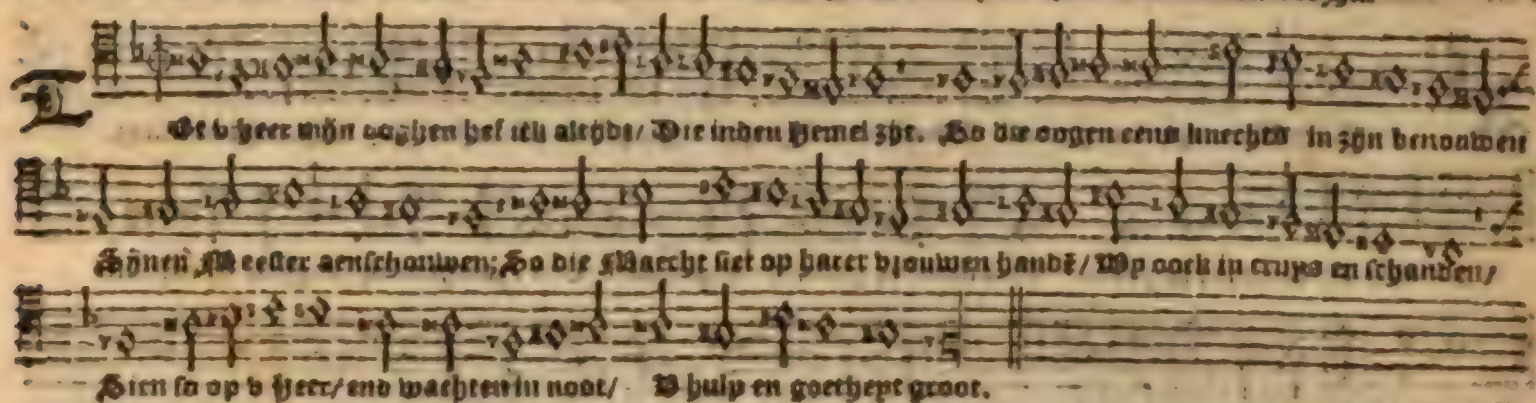 TOt v Heer mijn ooghen hef ick altijdt/ Die inden Hemel zijt. So die oogen eens knechts in zijn benouwen
Sijnen Meester aenschouwen; So die Maecht siet op harer vrouwen handẽ/ Wy oock in cruys en schanden/
Sien so op v Heer/ end wachten in noot/ V hulp en goetheyt groot.